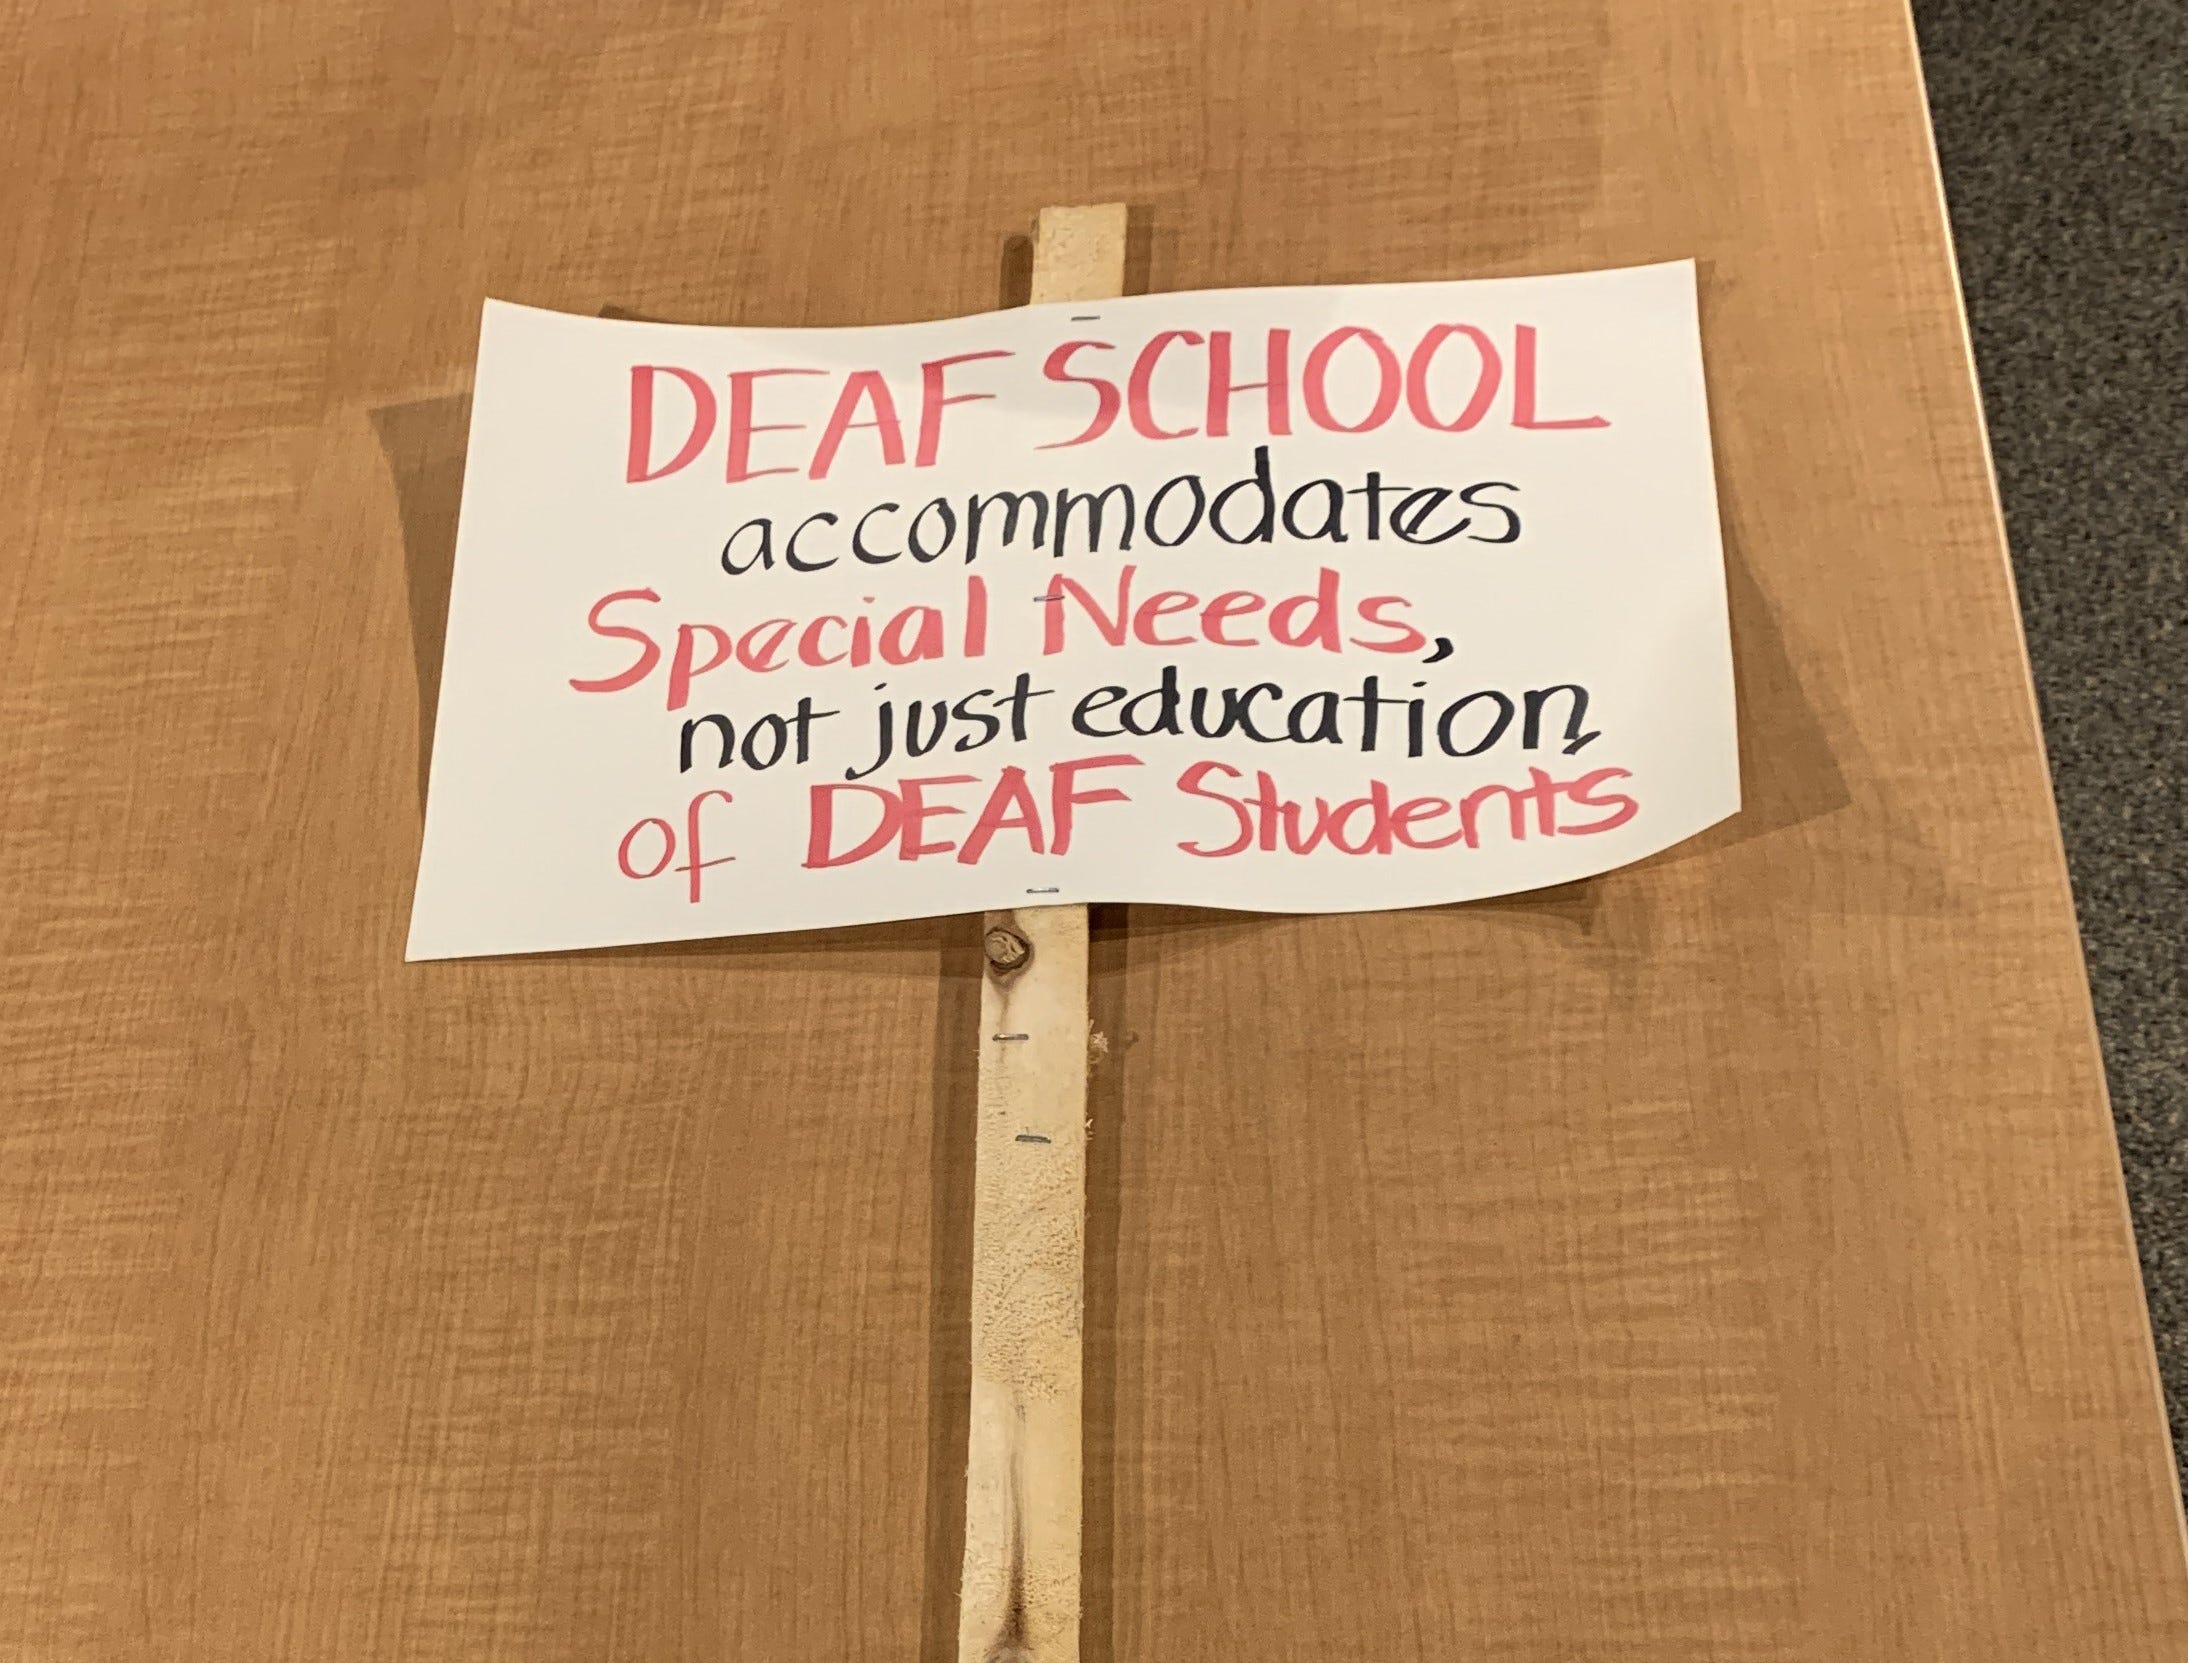 DEAF SCHOOL
accommodates
Special Needs,
not just education
of DEAF Students